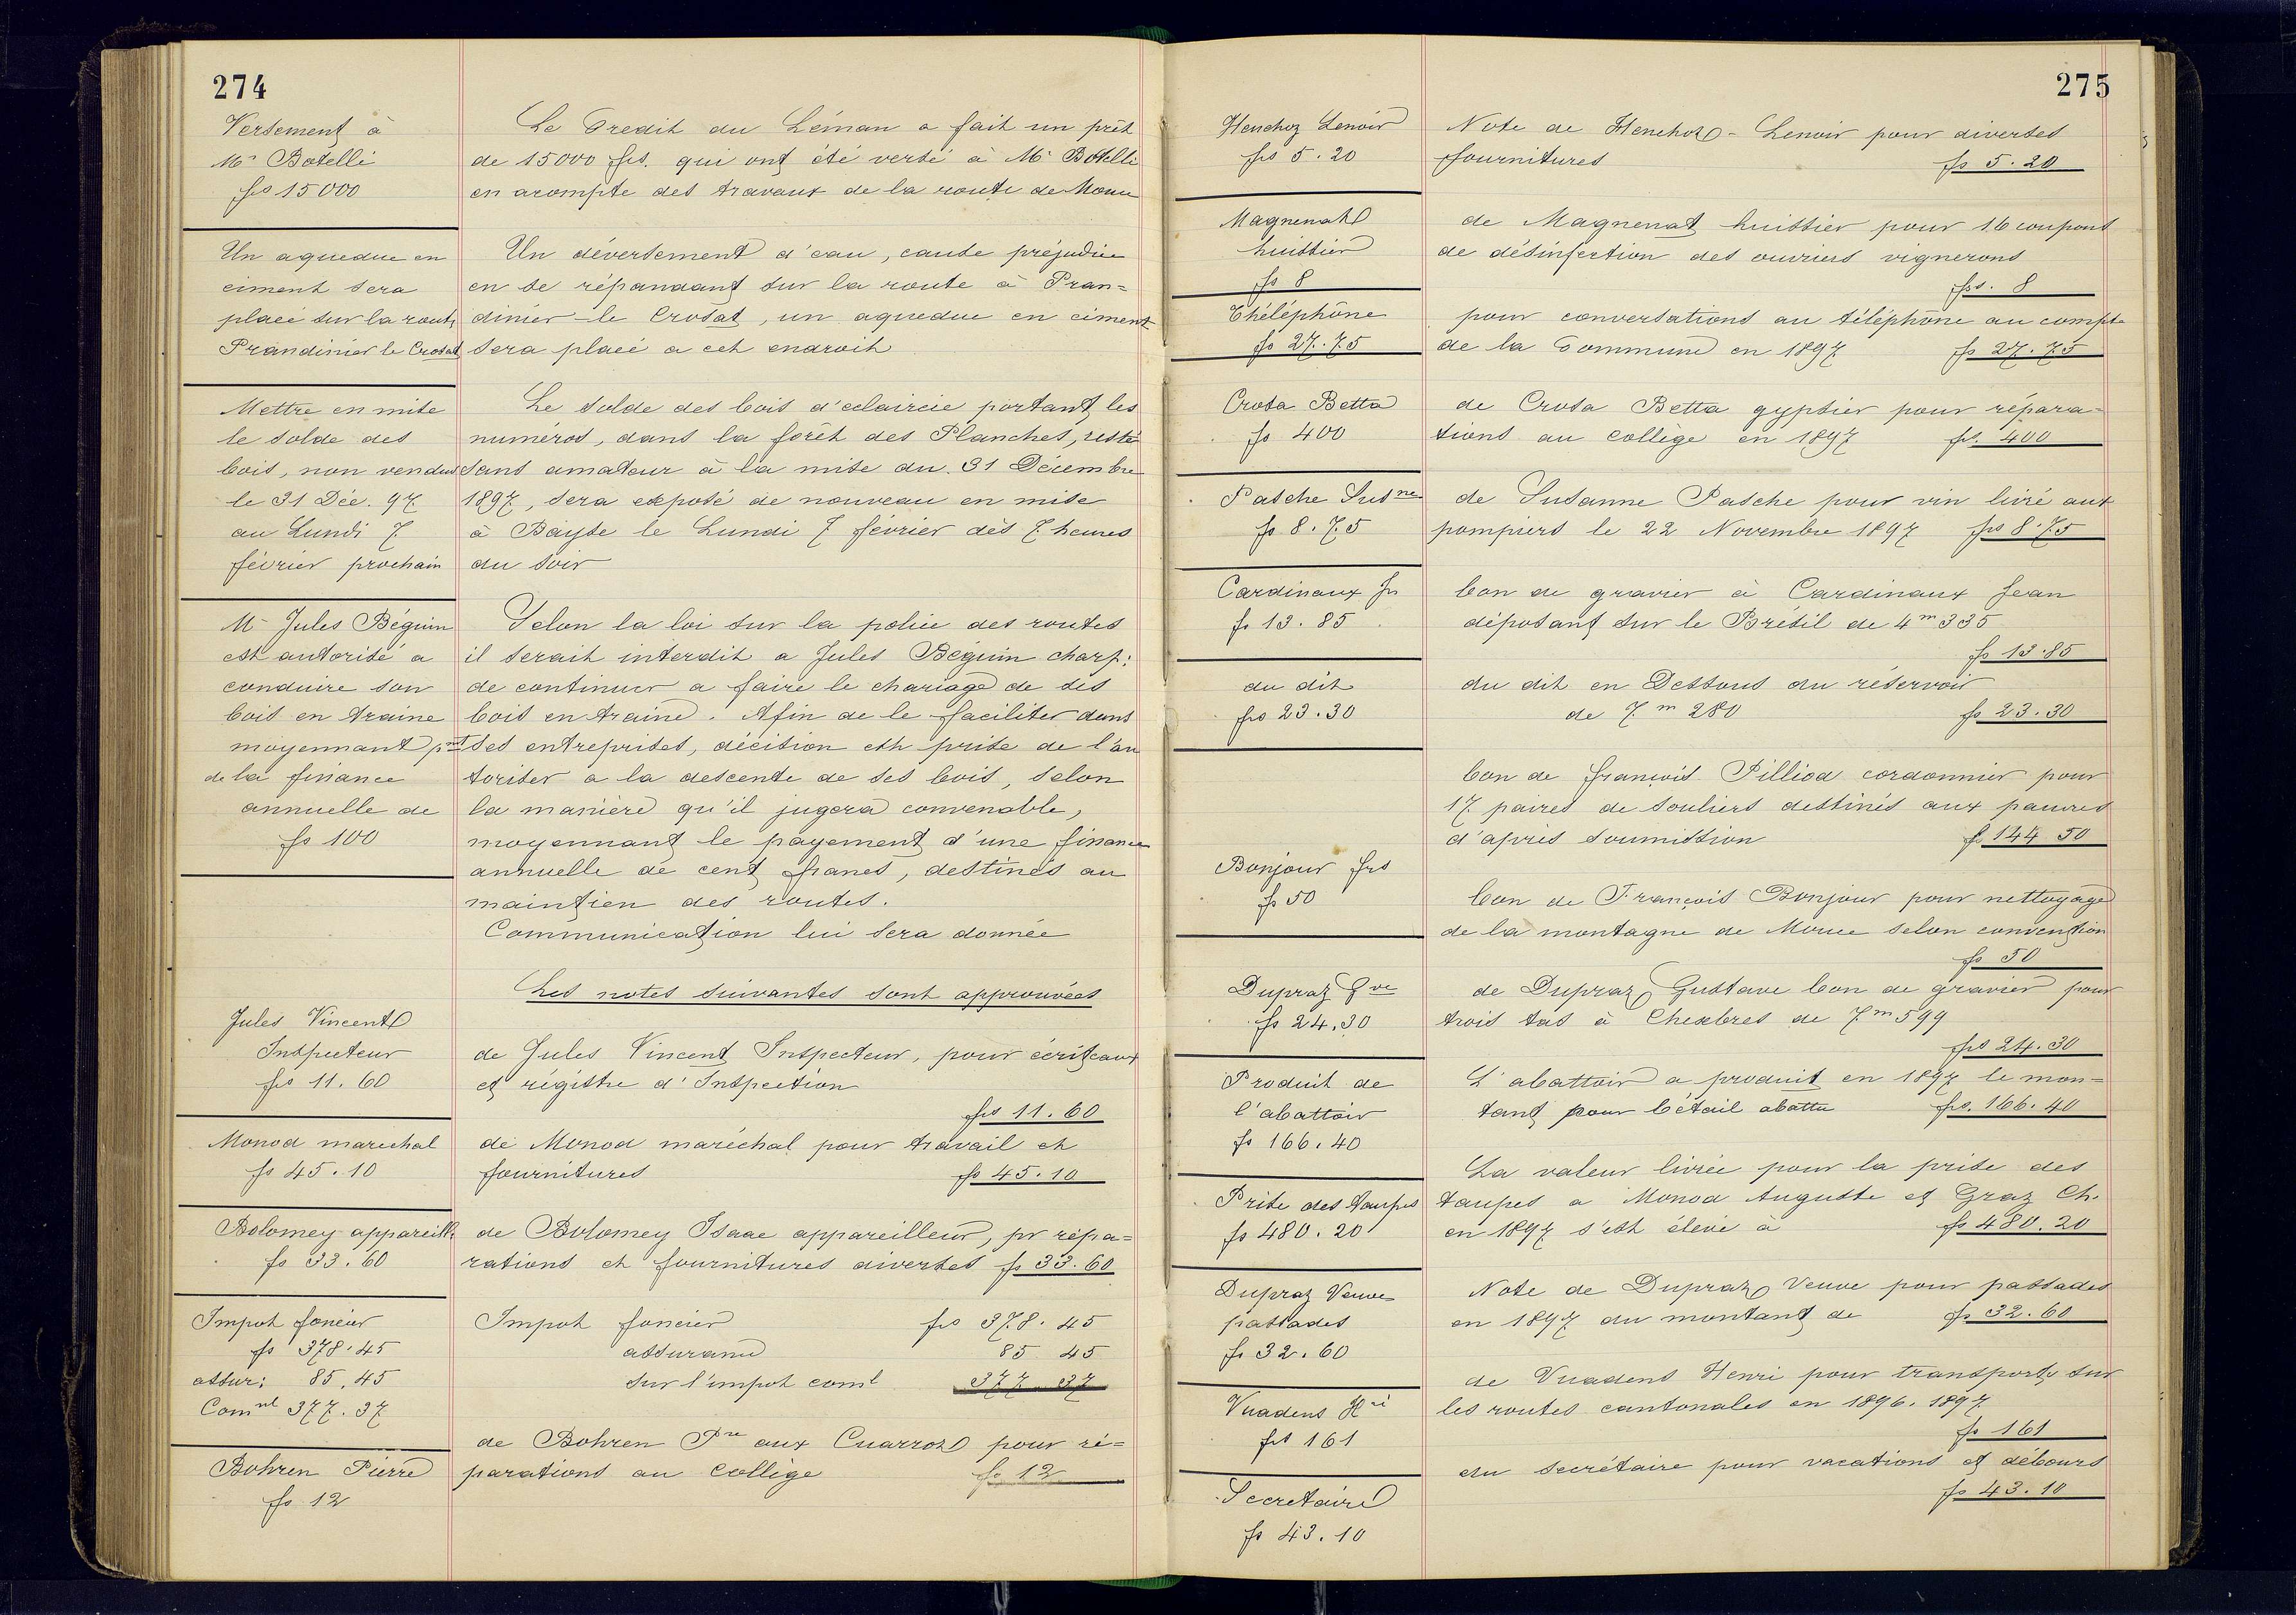 274
Versement à
Mr Botelli
frs 15000
Le Crédit du Léman a fait un prêt
de 15000 frs. qui ont été versé à Mr Botelli
en acompte des travaux de la route de Monu
Un aqueduc en
ciment sera
placé sur la route
Prandinier le Crosat
Un déversement d'eau, cause préjudice
en se répandant sur la route à Pran=
dinier-le Crosat, un aqueduc en ciment
sera placé a cet endroit
Mettre en mise
le solde des
bois, non vendus
le 31 Déc. 97
au Lundi 7
février prochain
Le solde des bois d'eclaircie portant les
numéros, dans la forêt des Planches, resté
sans amateur à la mise du 31 Décembre
1897, sera exposé de nouveau en mise
à Bayse le Lundi 7 février dès 7 heures
du soir
Mr Jules Béguin
est autorisé a
conduire son
bois en traine
moyennant pmt
de la finance
annuelle de
fs 100
Selon la loi sur la police des routes
il serait interdit a Jules Béguin charp:
de continuer a faire le chariage de ses
bois en traine. Afin de le faciliter dans
ses entreprises, décision est prise de l'au
toriser a la descente de ses bois, selon
la manière qu'il jugera convenable,
moyennant le payement d'une finance
annuelle de cent francs, destinés au
maintien des routes.
Communication lui sera donnée
Les notes suivantes sont approuvées
Jules Vincent
Inspecteur
frs 11.60
de Jules Vincent Inspecteur, pour écriteaux
et régistre d'Inspection
frs 11.60
Monod marechal
fs 45.10
de Monod maréchal pour travail et
fournitures fs 45.10
Bolomey appareill
fs 33.60
de Bolomey Isaac appareilleur, pr répa=
rations et fournitures diverses fs 33.60
Impot foncier
fs 378.45
assur: 85.45
Comnl 377.37
Impot foncier frs 378.45
assurance 85 45
sur l'impot coml 377.37
Bohren Pierre
fs 12
de Bohren Pre aux Cuarroz pour ré=
parations au collège fs 12
275
Henchoz Lenoir
frs 5.20
Note de Henchoz-Lenoir pour diverses
fournitures fs 5.20
Magnenat
huissier
fs 8
de Magnenat huissier pour 16 coupons
de désinfection des ouvriers vignerons
frs. 8
Théléphone
fs 27.75
pour conversations au téléphone au compte
de la Commune en 1897 fs 27.75
Crosa Betta
fs 400
de Crosa Betta gypsier pour répara=
tions au collège en 1897 frs. 400
Pasche Susne
fs 8.75
de Susanne Pasche pour vin livré aux
pompiers le 22 Novembre 1897 frs 8.75
Cardinaux Jn
fs 13.85
bon de gravier à Cardinaux Jean
déposant sur le Brésil de 4m 335
fs 13.85
du dit
frs 23.30
du dit en Dessous du réservoir
de 7.m 280 fs 23.30
bon de françois Pilliod cordonnier pour
17 paires de souliers destinés aux pauvres
d'après soumission fs 144.50
Bonjour frs
fs 50
bon de François Bonjour pour nettoyage
de la montagne de Mouce selon convention
fs 50
Dupraz Gve
fs 24.30
de Dupraz Gustave bon de gravier pour
trois tas à Chexbres de 7.m 599
frs 24.30
Produit de
l'abattoir
fs 166.40
L'abattoir a produit en 1897 le mon=
tant pour bétail abattu frs. 166.40
Prise des taupes
fs 480.20
La valeur livrée pour la prise des
taupes a Monod Auguste et Graz Ch.
en 1897 s'est élevé à fs 480.20
Dupraz Veuve
passades
fs 32.60
Note de Dupraz Veuve pour passades
en 1897 du montant de fs 32.60
Vuadens Hri
frs 161
de Vuadens Henri pour transports sur
les routes cantonales en 1896. 1897
fs 161
Secretaire
fs 43.10
du secrétaire pour vacations et débours
fs 43.10